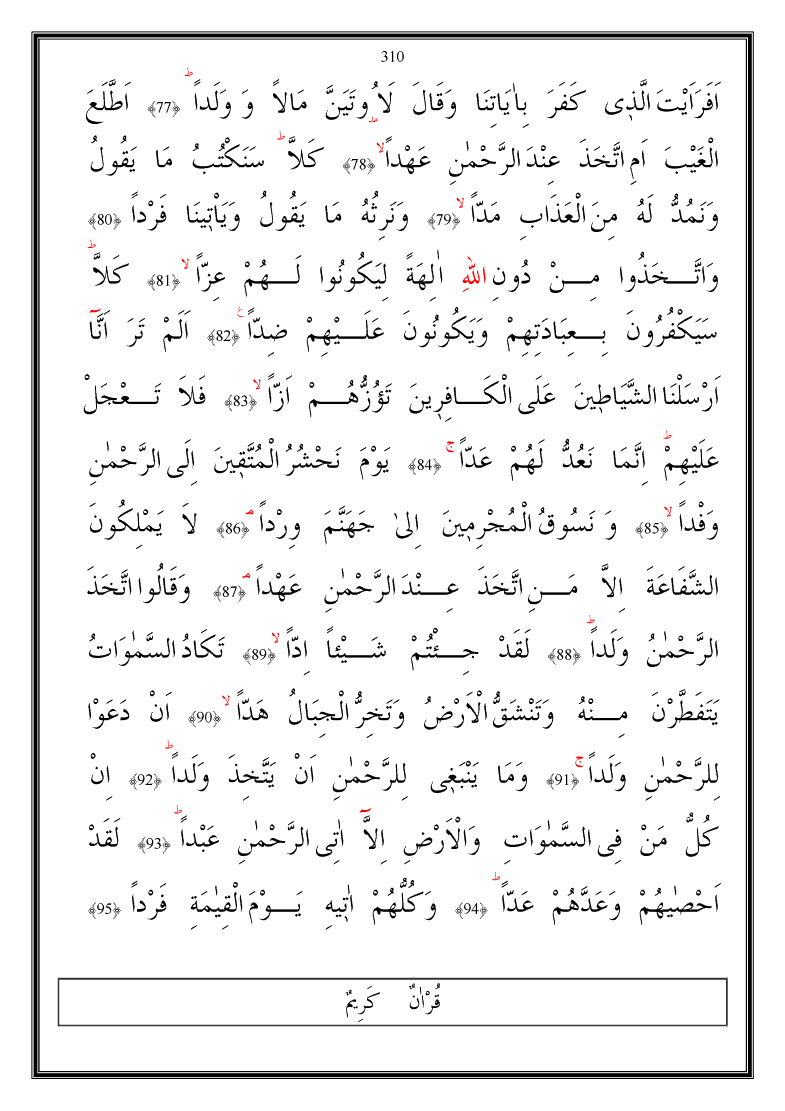 310
اَفَرَاَيْتَ الَّذٖى كَفَرَ بِاٰيَاتِنَا وَقَالَ لَاُوتَيَنَّ مَالاً وَ وَلَداًؕ ﴿77﴾ اَطَّلَعَ
الْغَيْبَ اَمِ اتَّخَذَ عِنْدَ الرَّحْمٰنِ عَهْداًۙ ﴿78﴾ كَلاَّؕ سَنَكْتُبُ مَا يَقُولُ
وَنَمُدُّ لَهُ مِنَ الْعَذَابِ مَدّاًۙ ﴿79﴾ وَنَرِثُهُ مَا يَقُولُ وَيَاْتٖينَا فَرْداً ﴿80﴾
وَاتَّـــخَذُوا مِـــنْ دُونِ اللّٰهِ اٰلِهَةً لِيَكُونُوا لَـــهُمْ عِزّاًۙ ﴿81﴾ كَلاَّؕ
سَيَكْفُرُونَ بِـــعِبَادَتِهِمْ وَيَكُونُونَ عَلَـــيْهِمْ ضِدّاًࣖ ﴿82﴾ اَلَمْ تَرَ اَنَّٓا
اَرْسَلْنَا الشَّيَاطٖينَ عَلَى الْكَـــافِرٖينَ تَؤُزُّهُـــمْ اَزّاًۙ ﴿83﴾ فَلاَ تَـــعْجَلْ
عَلَيْهِمْؕ اِنَّمَا نَعُدُّ لَهُمْ عَدّاًۚ ﴿84﴾ يَوْمَ نَحْشُرُ الْمُتَّقٖينَ اِلَى الرَّحْمٰنِ
وَفْداًۙ ﴿85﴾ وَ نَسُوقُ الْمُجْرِمٖينَ اِلىٰ جَهَنَّمَ وِرْداًۢ ﴿86﴾ لاَ يَمْلِكُونَ
الشَّفَاعَةَ اِلاَّ مَـــنِ اتَّخَذَ عِـــنْدَ الرَّحْمٰنِ عَهْداًۢ ﴿87﴾ وَقَالُوا اتَّخَذَ
الرَّحْمٰنُ وَلَداًؕ ﴿88﴾ لَقَدْ جِـــئْتُمْ شَـــيْئاً اِدّاًۙ ﴿89﴾ تَكَادُ السَّمٰوَاتُ
يَتَفَطَّرْنَ مِـــنْهُ وَتَنْشَقُّ الْاَرْضُ وَتَخِرُّ الْجِبَالُ هَدّاًۙ ﴿90﴾ اَنْ دَعَوْا
لِلرَّحْمٰنِ وَلَداًۚ ﴿91﴾ وَمَا يَنْبَغٖى لِلرَّحْمٰنِ اَنْ يَتَّخِذَ وَلَداًؕ ﴿92﴾ اِنْ
كُلُّ مَنْ فِى السَّمٰوَاتِ وَالْاَرْضِ اِلآَّ اٰتِى الرَّحْمٰنِ عَبْداًؕ ﴿93﴾ لَقَدْ
اَحْصٰيهُمْ وَعَدَّهُمْ عَدّاًؕ ﴿94﴾ وَكُلُّهُمْ اٰتٖيهِ يَـــوْمَ الْقِيٰمَةِ فَرْداً ﴿95﴾
قُرْاٰنٌ كَرِيمٌ